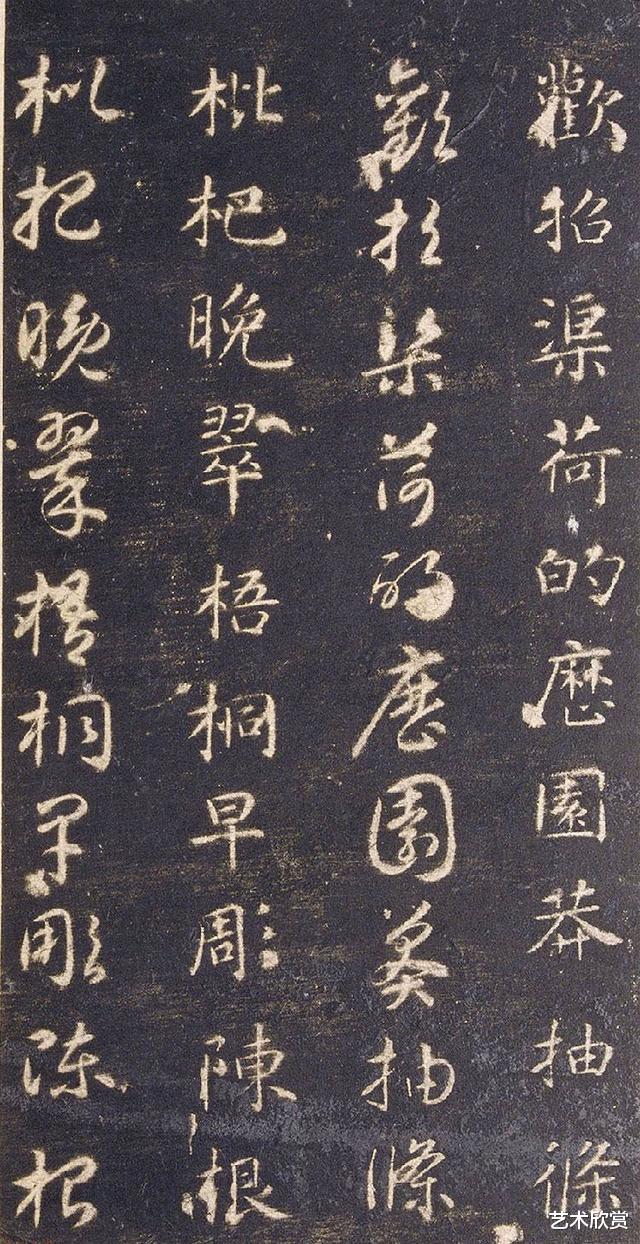 歡招渠荷的歷園莽抽條
歡招渠荷的歷園莽抽條
枇杷晚翠梧桐早彫陳根
枇杷晚翠梧桐早彫陳根
艺术欣赏